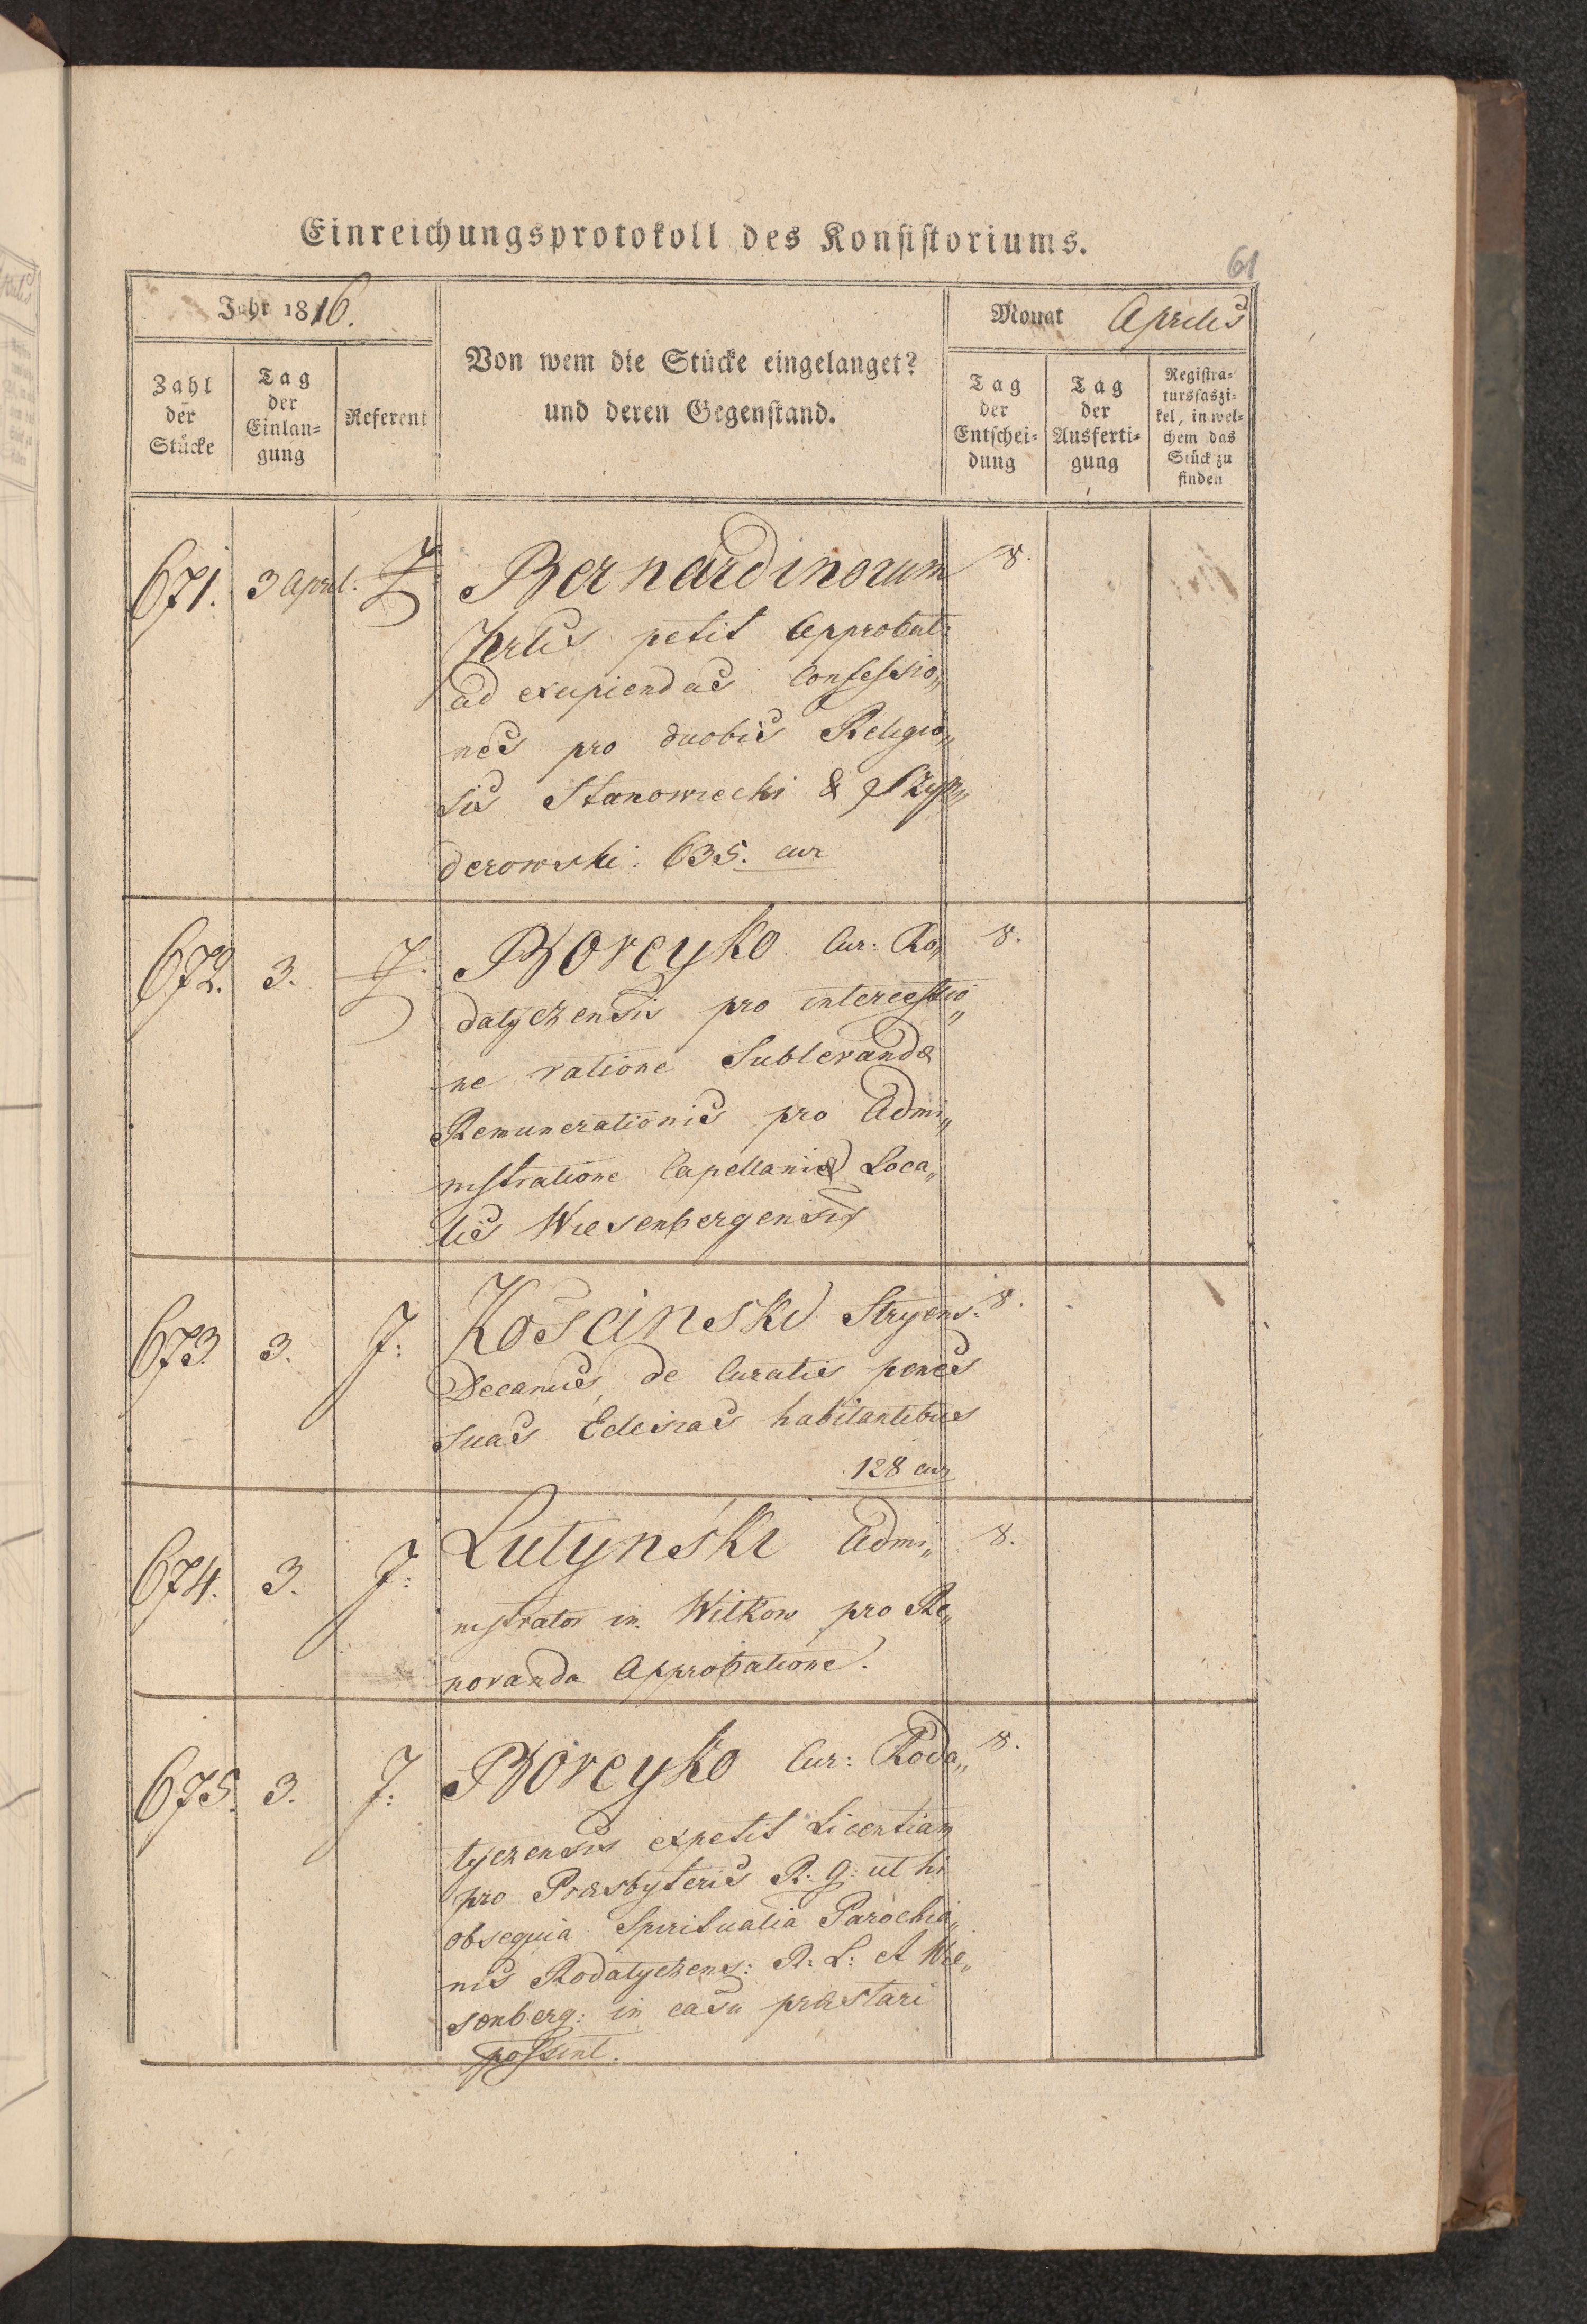 Einreichungsprotokoll des Konsistoriums.
61
Jahr 1816.
Monat Aprilis
Zahl der Stücke
Tag der Einlan= gung
Referent
Von wem die Stücke eingelanget?
und deren Gegenstand.
Tag der Entschei= dung
Tag der Ausferti= gung
Registra= tursfaszi= kel, in wel= chem das Stück zu finden
671. 3 April. J: Bernardinorum 8.
petit Approbat:
ad excipiendas Confessio„
nes pro duobus Religio„
sis Stanowiecki &
derowski. 635. cur
672. 3. J: Boreyko. Cur: Ro„ 8.
datyczensis pro intercessio„
ne ratione Sublevandæ
Remunerationis pro Admi„
nistratione Capellaniæ Loca„
lis Wiesenbergensis
673. 3. J: Kościnski Stryens. 8.
Decanus, de Curatis penes
suas Eclesias habitantibus
128 cur
674. 3. J: Lutyński Admi„ 8.
nistrator in Witkow pro Re„
novanda Approbatione.
675. 3. J: Boreyko Cur: Roda„ 8.
tyczensis expetit Licentiam
pro Præsbyteris R: G: ut hi
obsequia Spiritualia Parochia„
nis Rodatyczens: R: L: et Wie„
senberg: in casu præstari
possint.